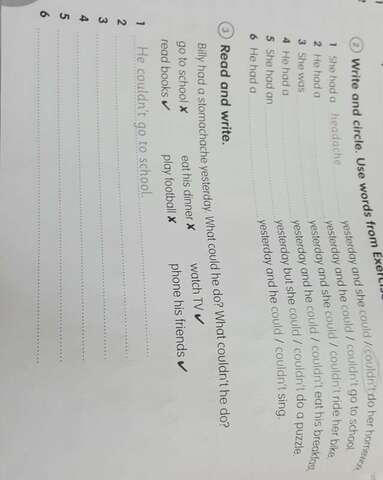 2 Write and circle. Use words from
1 She had a headache yesterday and she could / couldn't do her homework.
2 He had a yesterday and he could / couldn't go to school.
3 She was yesterday and she could / couldn't ride her bike.
4 He had a yesterday and he could / couldn't eat his breakfast.
5 She had an yesterday but she could / couldn't do a puzzle.
6 He had a yesterday and he could / couldn't sing.
3 Read and write.
Billy had a stomachache yesterday. What could he do? What couldn't he do?
go to school ✗ eat his dinner ✗ watch TV ✓
read books ✓ play football ✗ phone his friends ✓
1 He couldn't go to school.
2
3
4
5
6